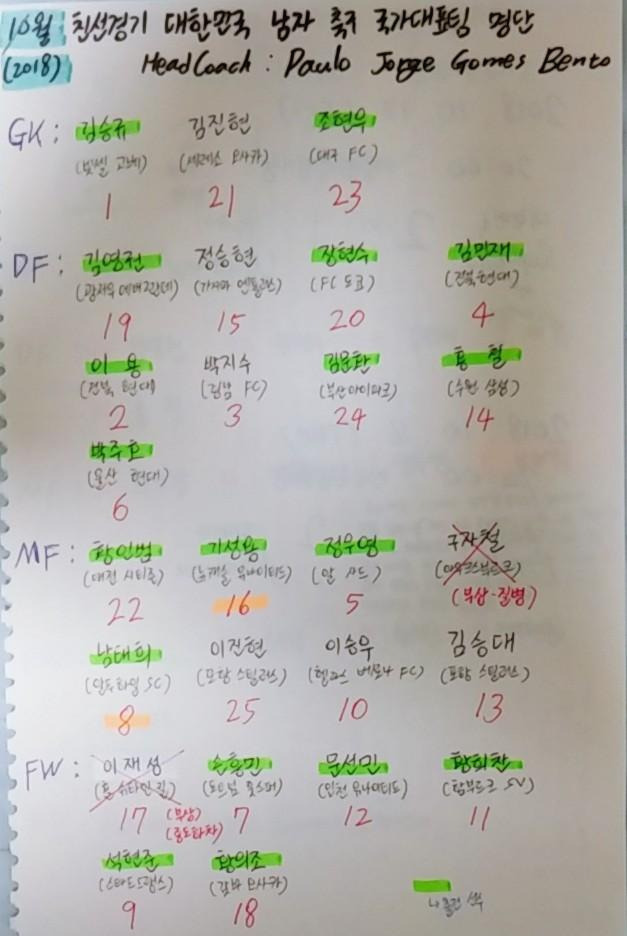 10월 친선경기 대한민국 남자 축구 국가대표팀 명단
(2018) Head Coach : Paulo Jorge Gomes Bento
GK : 김승규 김진현 조현우
(빗셀 고베) (세레소 오사카) (대구 FC)
1 21 23
DF : 김영권 정승현 장현수 김민재
(광저우 에버그란데) (가시마 앤틀러스) (FC 도쿄) (전북 현대)
19 15 20 4
이 용 박지수 김문환 홍 철
(전북 현대) (경남 FC) (부산아이파크) (수원 삼성)
2 3 24 14
박주호
(울산 현대)
6
MF : 황인범 기성용 정우영 구자철
(대전 시티즌) (뉴캐슬 유나이티드) (알 사드) (아우크스부르크)
22 16 5 (부상·질병)
남태희 이진현 이승우 김승대
(알두하일 SC) (포항 스틸러스) (헬라스 베로나 FC) (포항 스틸러스)
8 25 10 13
FW : 이재성 손흥민 문선민 황희찬
(홀슈타인 킬) (토트넘 홋스퍼) (인천 유나이티드) (함부르크 SV)
17 (부상) 7 12 11
(중도하차)
석현준 황의조
(스타드 드 랭스) (감바 오사카)
9 18